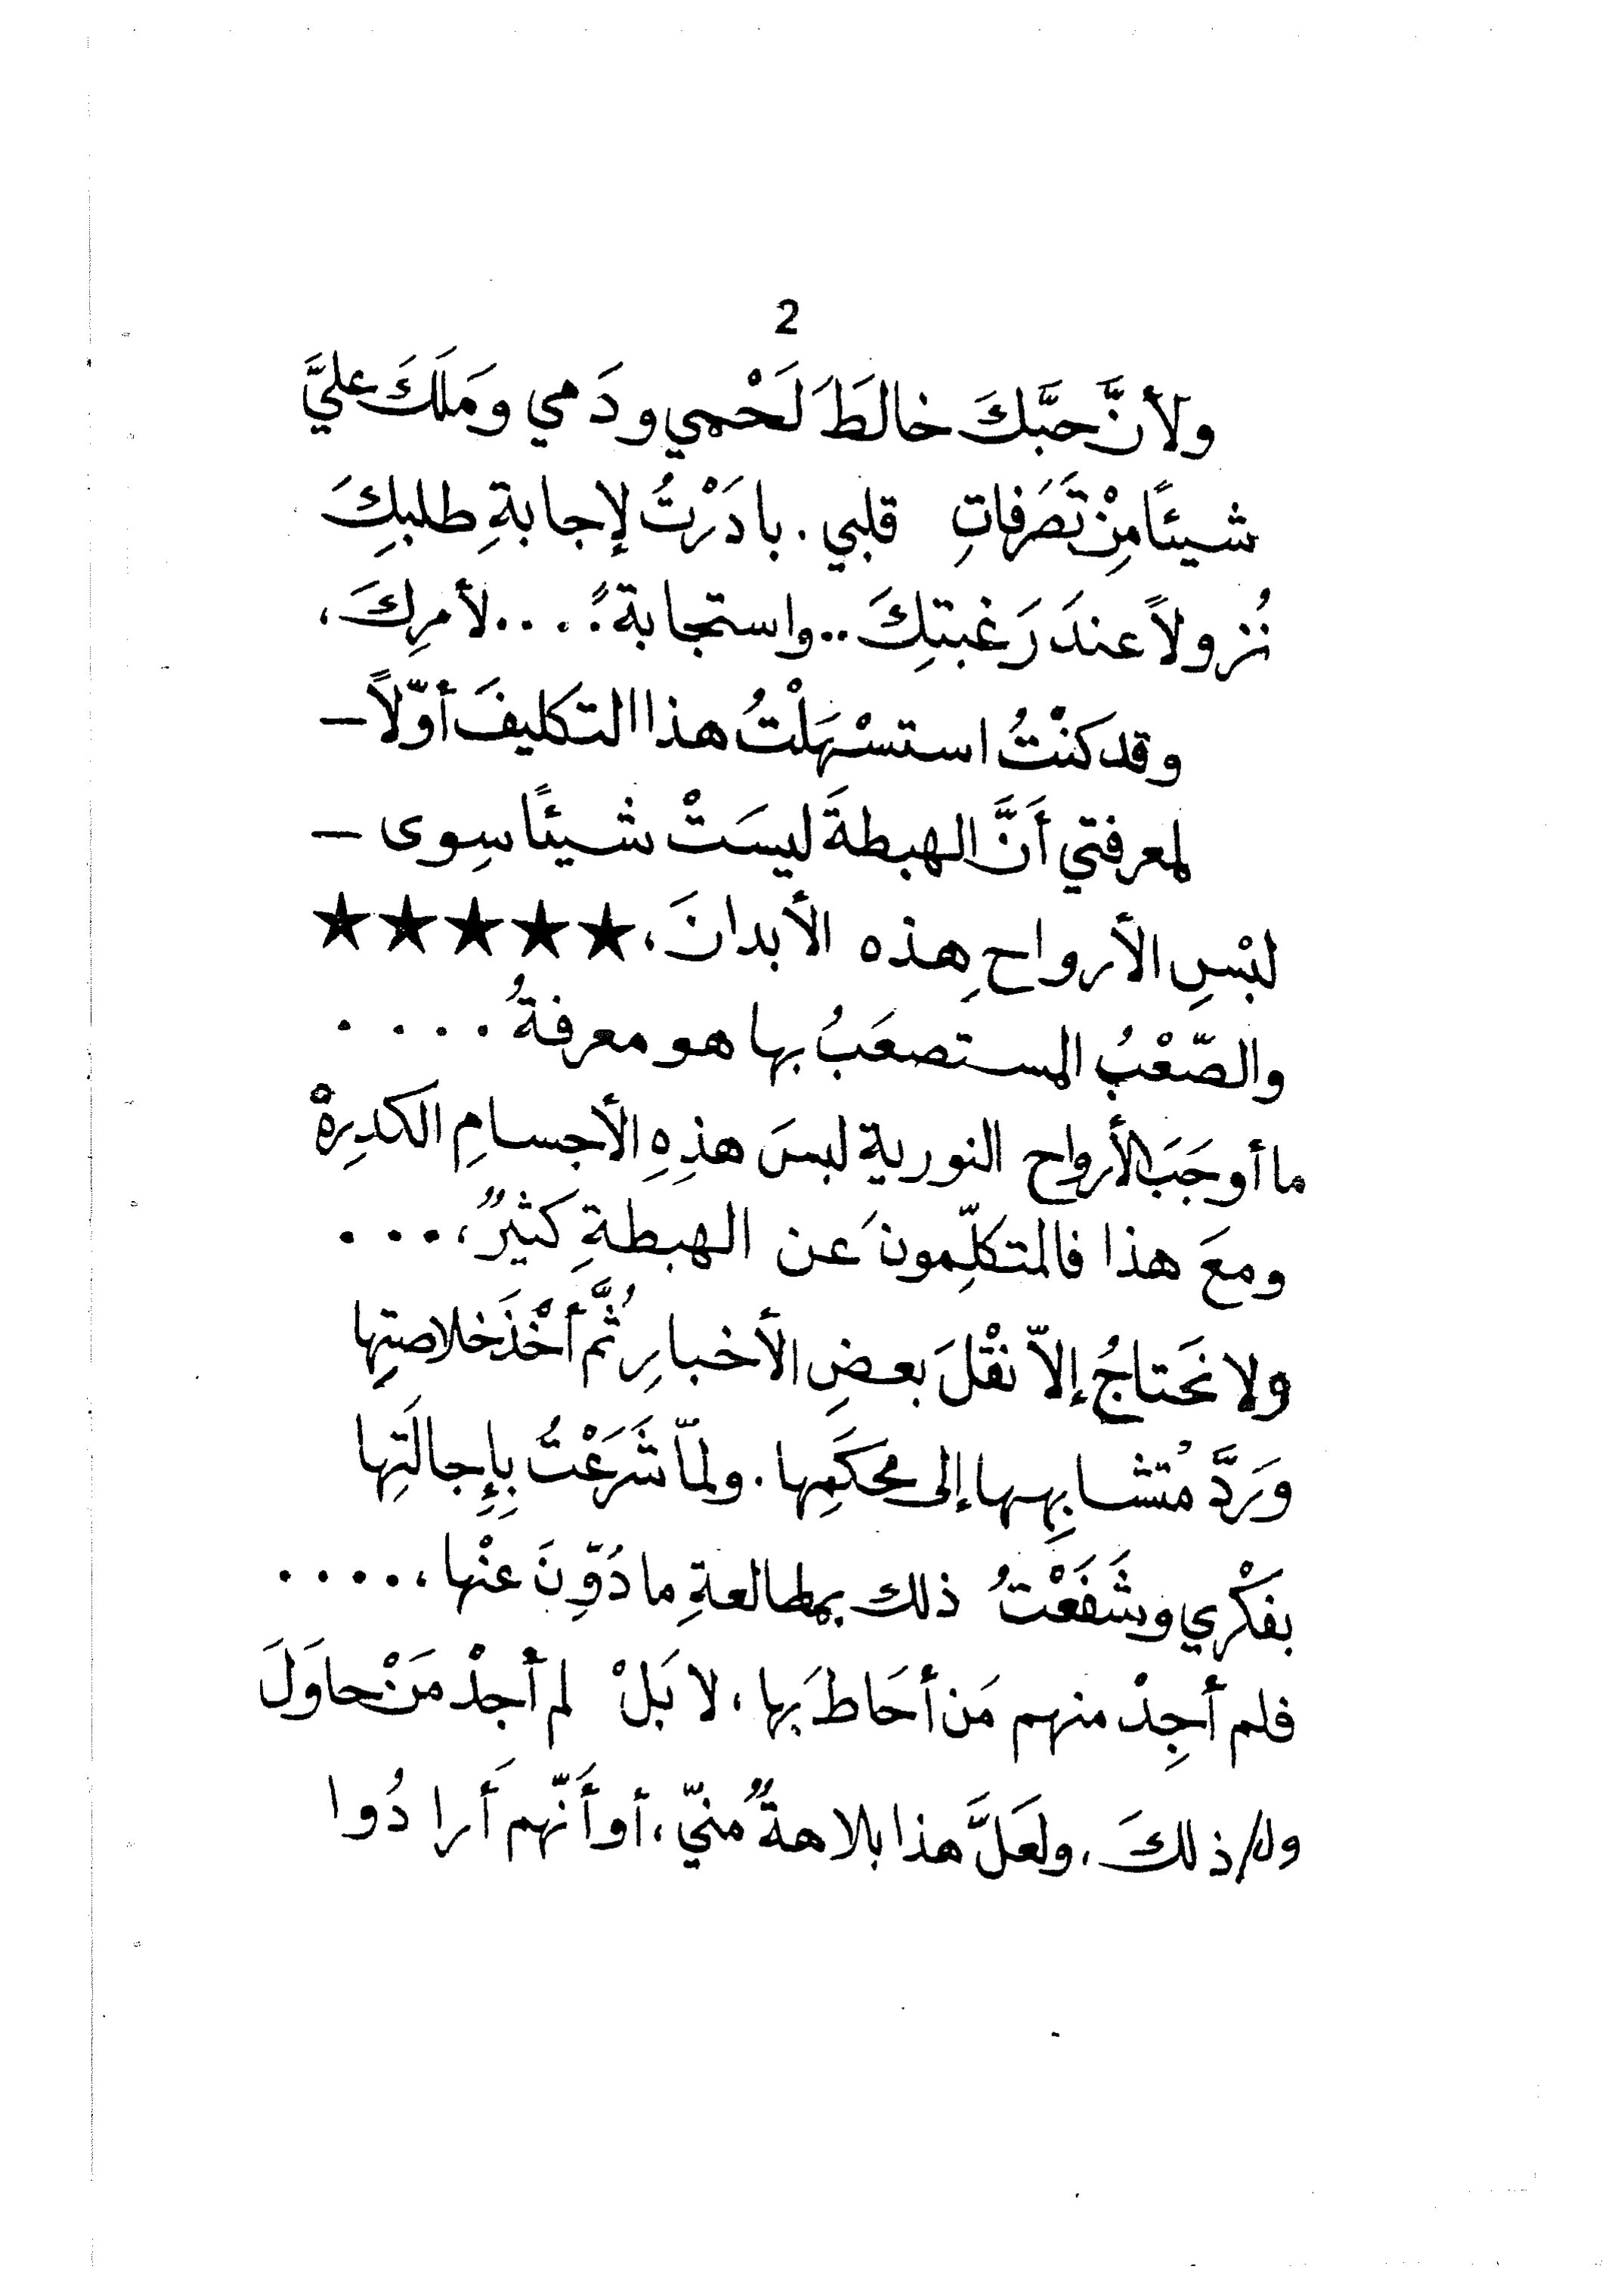 2
ولأنَّ حبَّكَ خالطَ لَحْمي ودَمي ومَلَكَ عليَّ
شيئًا مِنْ تَصَرفاتِ قلبي . بادَرْتُ لإجابةِ طلبِكَ
نُزولاً عندَ رَغبتِكَ .. واستجابةً .... لأمرِكَ ،
وقد كنْتُ استسْهَلْتُ هذا التكليفَ أوّلاً –
لمعرفتي أَنَّ الهبطةَ ليسَتْ شيئًا سِوى –
لبْسِ الأرواحِ هذه الأبدانَ ، ★★★★★
والصّعْبُ المستصعَبُ بها هو معرفةُ ....
ما أوجَبَ الأرواح النورية لبسَ هذِهِ الأجسامِ الكدِرةْ
ومعَ هذا فالمتكلِّمونَ عن الهبطةِ كثيرٌ ، ...
ولا نَحتاجُ إلاّ نقْلَ بعضِ الأخبارِ ثُمَّ أخْذَ خلاصتِها
ورَدَّ مُتشابِهها إلى محكَمِها . ولمّا شَرَعْتُ بِإجالَتِها
بفكْري وشَفَعْتُ ذلك بمطالعةِ ما دُوِّنَ عنْها ، ....
فلم أجِدْ منهم مَن أحَاطَ بَها ، لا بَلْ لم أجدْ مَنْ حاوَلَ
ذلكَ ، ولعَلَّ هذا بلاهةٌ منّي ، أو أنّهم أَرادُوا